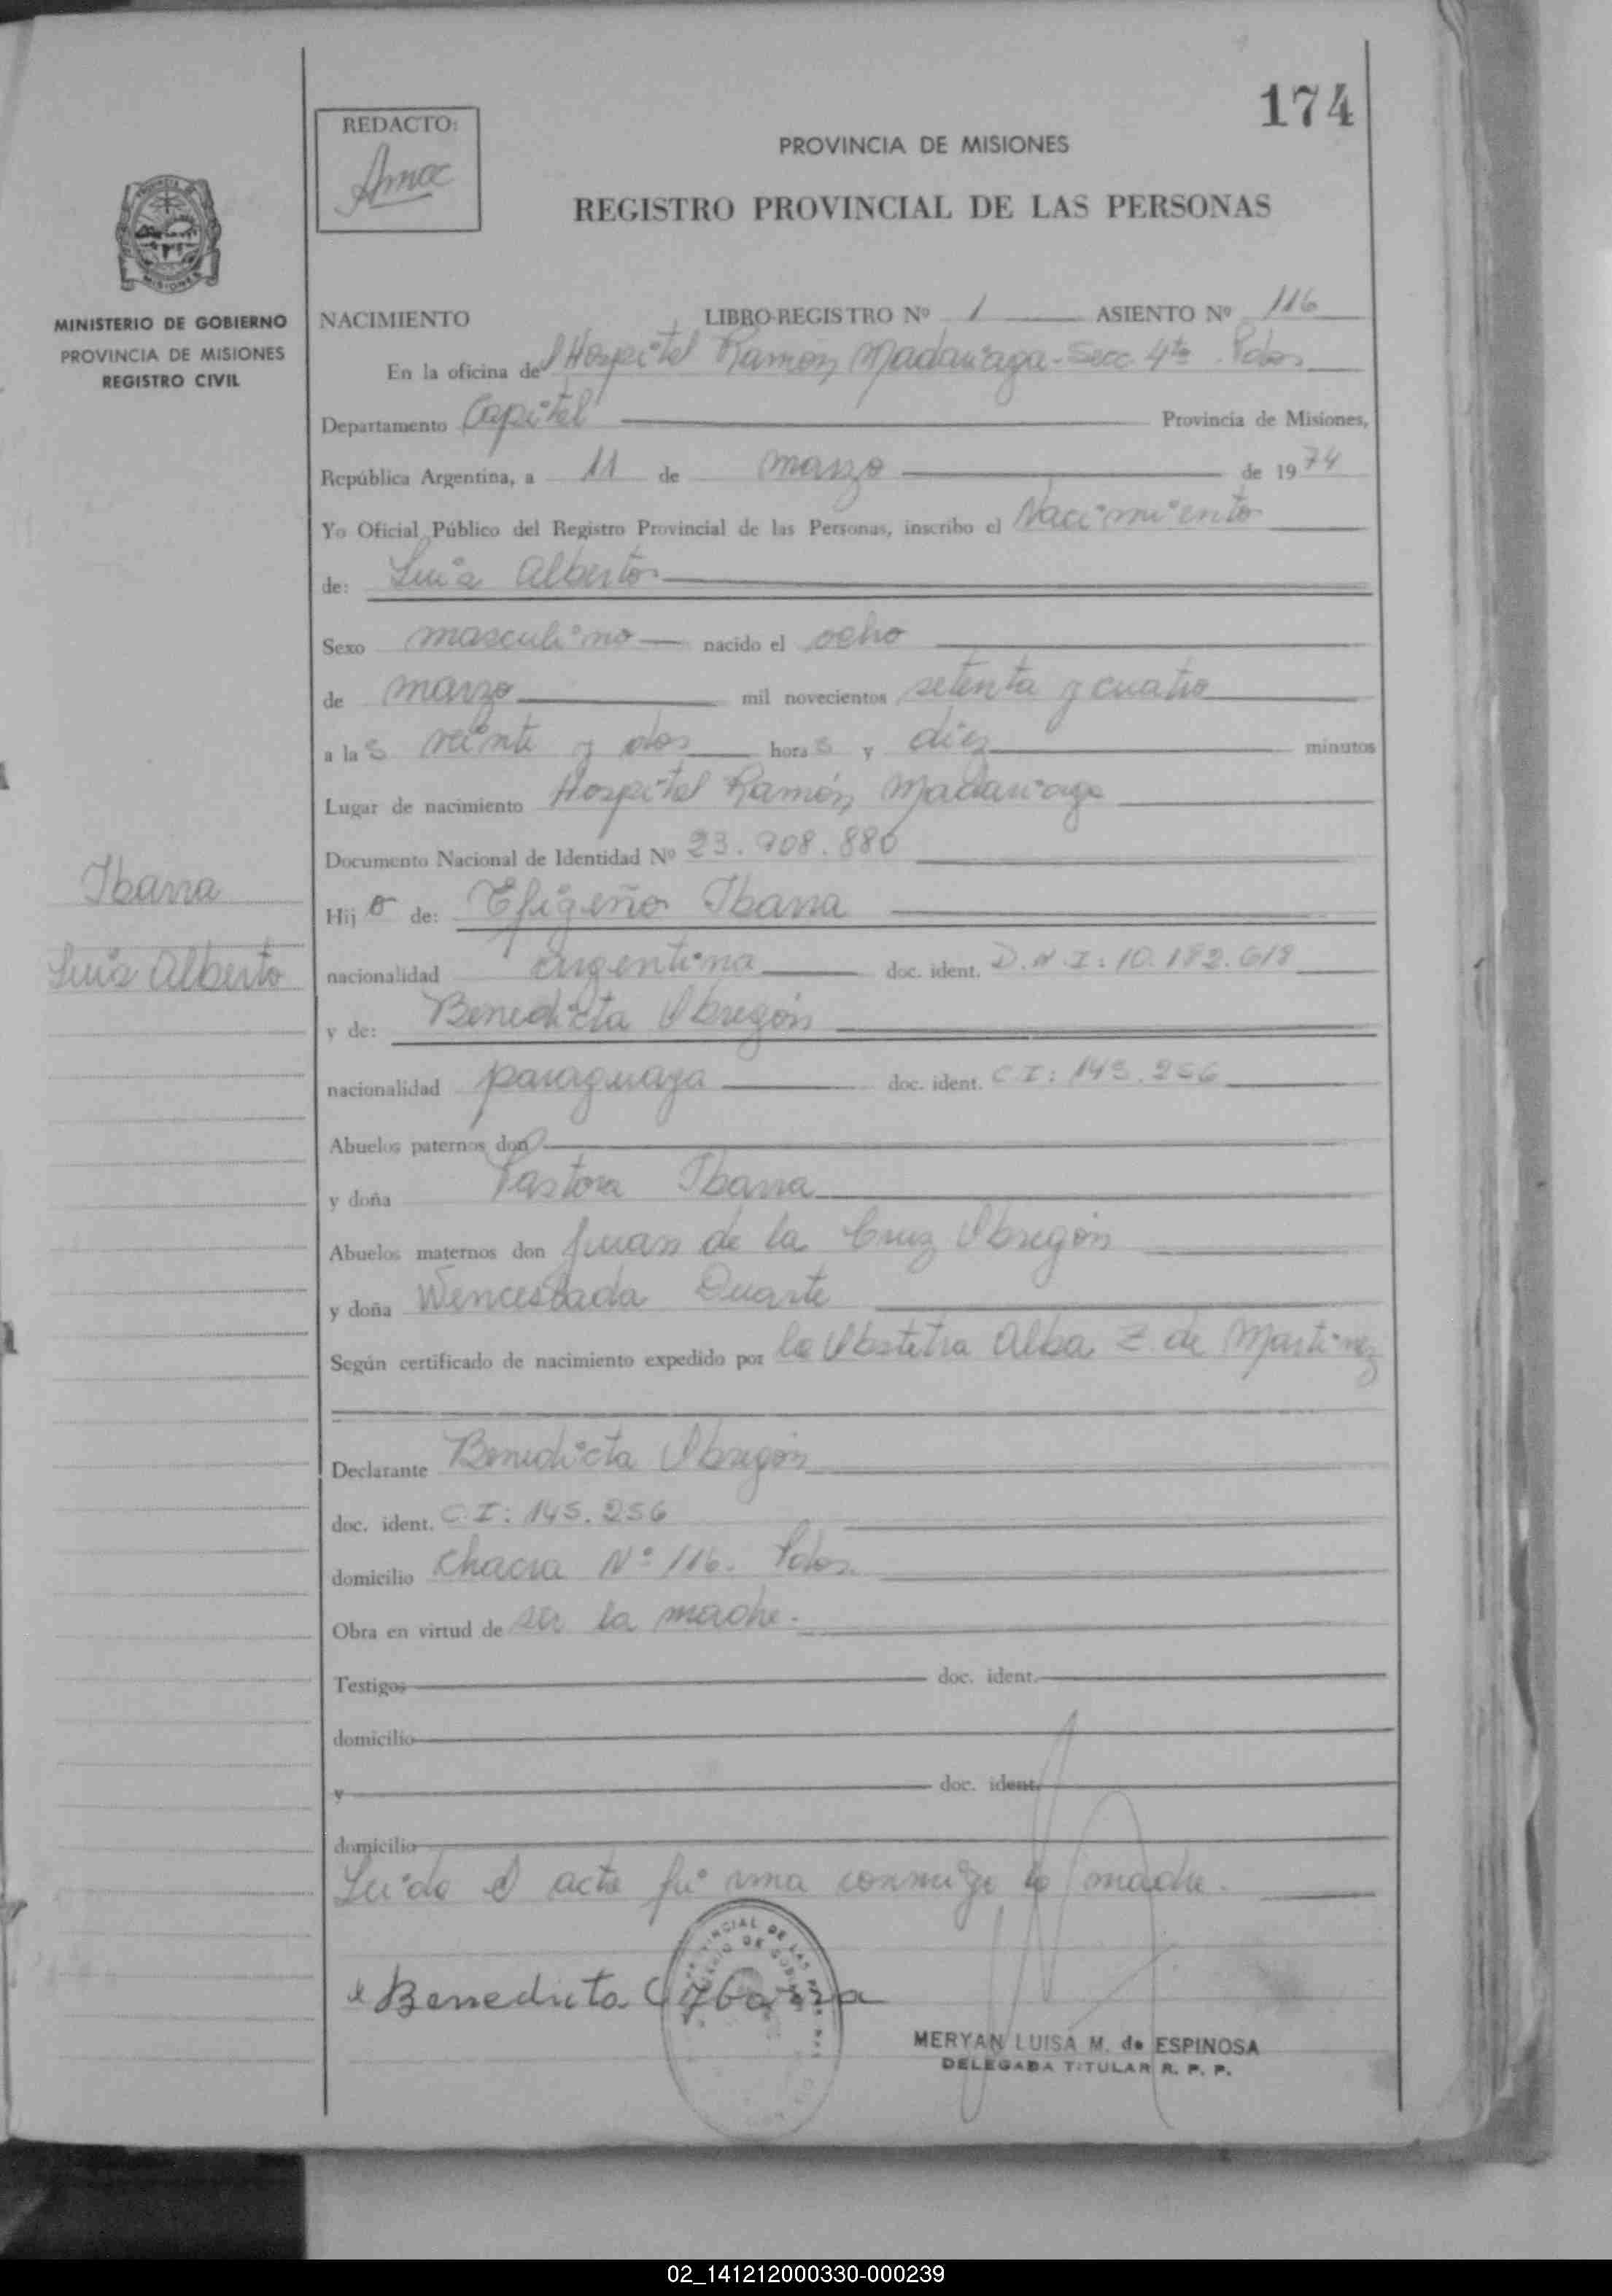 174
REDACTO:
PROVINCIA DE MISIONES
REGISTRO PROVINCIAL DE LAS PERSONAS
MINISTERIO DE GOBIERNO
PROVINCIA DE MISIONES
REGISTRO CIVIL
NACIMIENTO LIBRO-REGISTRO Nº 1 ASIENTO Nº 116
En la oficina del Hospital Ramón Madariaga - Secc. 4ta. Pdas.
Departamento Capital Provincia de Misiones,
República Argentina, a 11 de marzo de 1974
Yo Oficial Público del Registro Provincial de las Personas, inscribo el Nacimiento
de: Luis Alberto
Sexo masculino nacido el ocho
de marzo mil novecientos setenta y cuatro
a las veinte y dos horas y diez minutos
Lugar de nacimiento Hospital Ramón Madariaga
Documento Nacional de Identidad Nº 23.908.880
Ibarra
Luis Alberto
Hijo de: Efigeño Ibarra
nacionalidad argentina doc. ident. D.N.I: 10.182.618
y de: Benedicta Obregón
nacionalidad paraguaya doc. ident. C.I: 145.256
Abuelos paternos don
y doña Pastora Ibarra
Abuelos maternos don Juan de la Cruz Obregón
y doña Wenceslada Duarte
Según certificado de nacimiento expedido por la Obstetra Alba Z. de Martinez
Declarante Benedicta Obregón
doc. ident. C.I: 145.256
domicilio Chacra Nº 116. Pdas.
Obra en virtud de ser la madre.
Testigos doc. ident.
domicilio
y doc. ident.
domicilio
Leida el acta firma conmigo la madre.
Benedicta
MERYAN LUISA M. de ESPINOSA
DELEGADA TITULAR R. P. P.
02_141212000330-000239